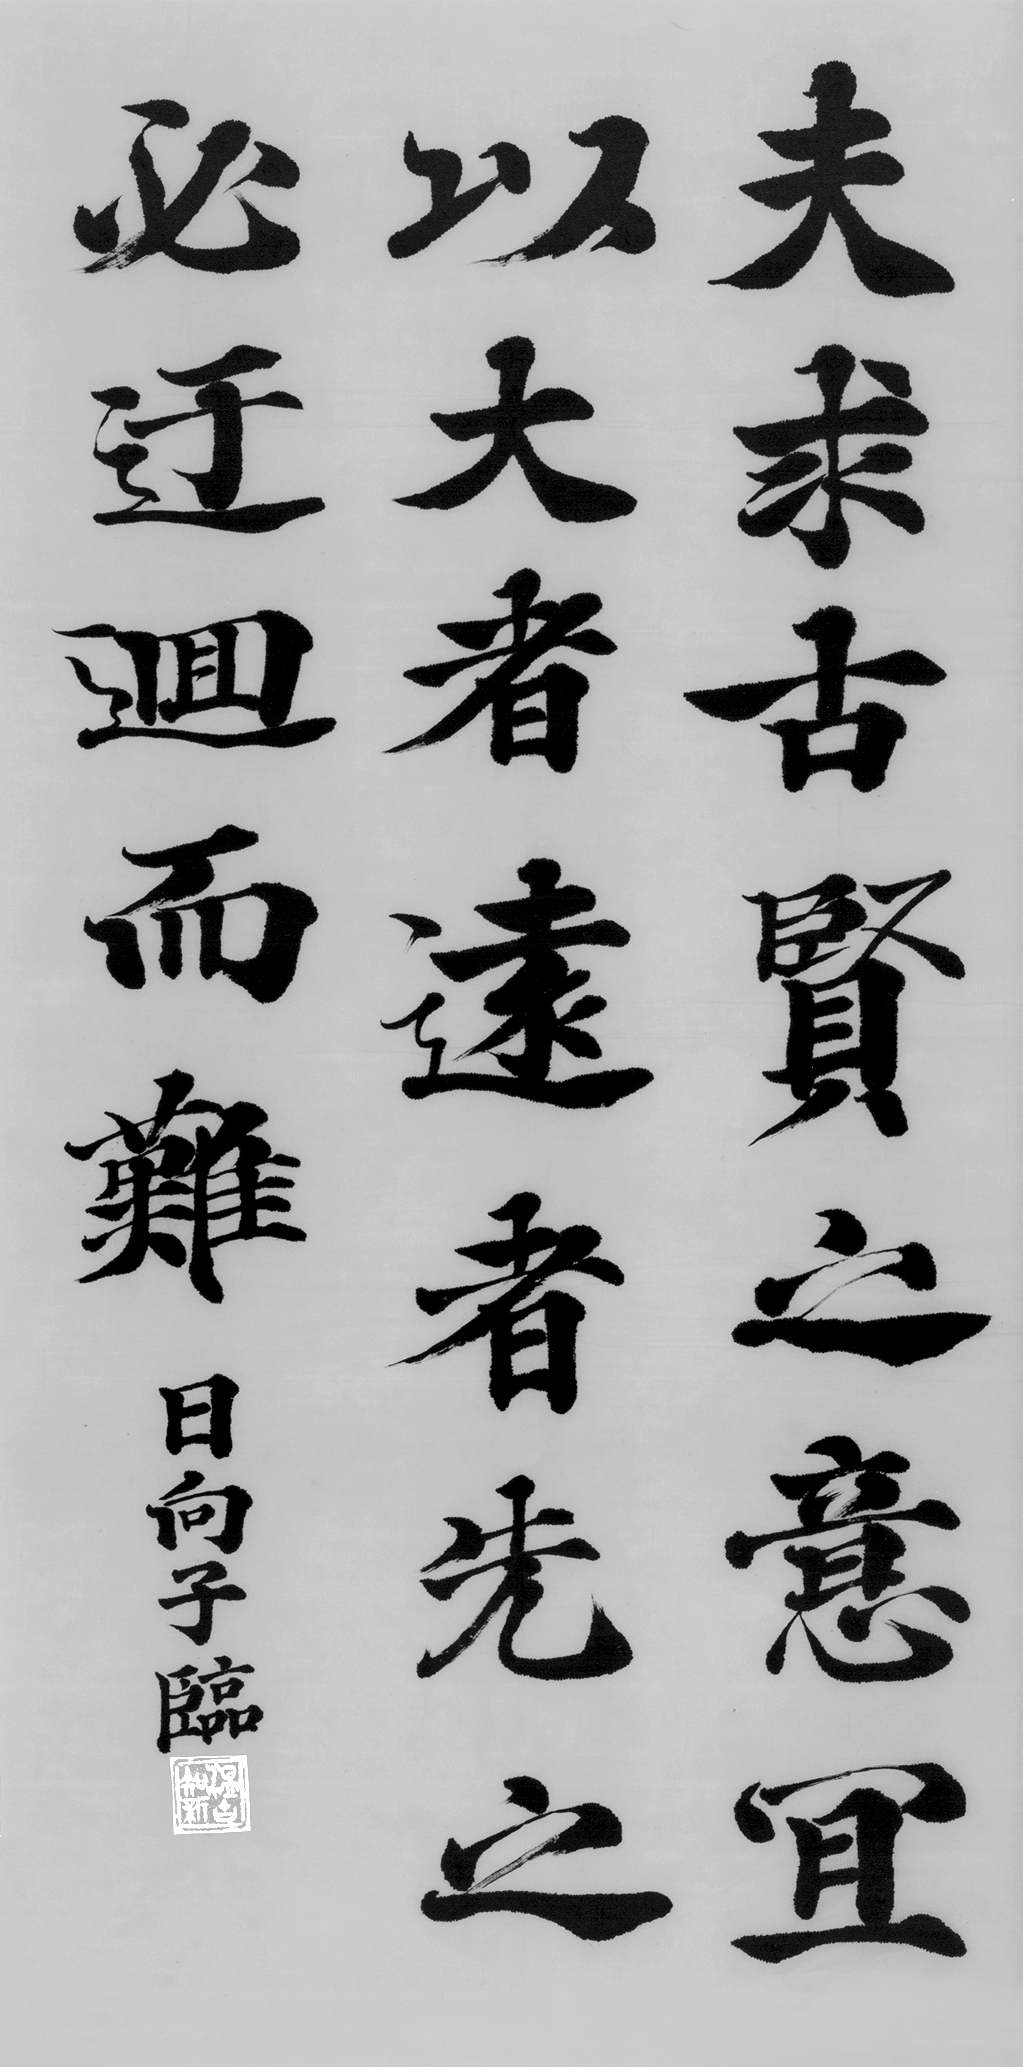 夫求古賢之意冝
以大者遠者先之
必迂迴而難
日向子臨